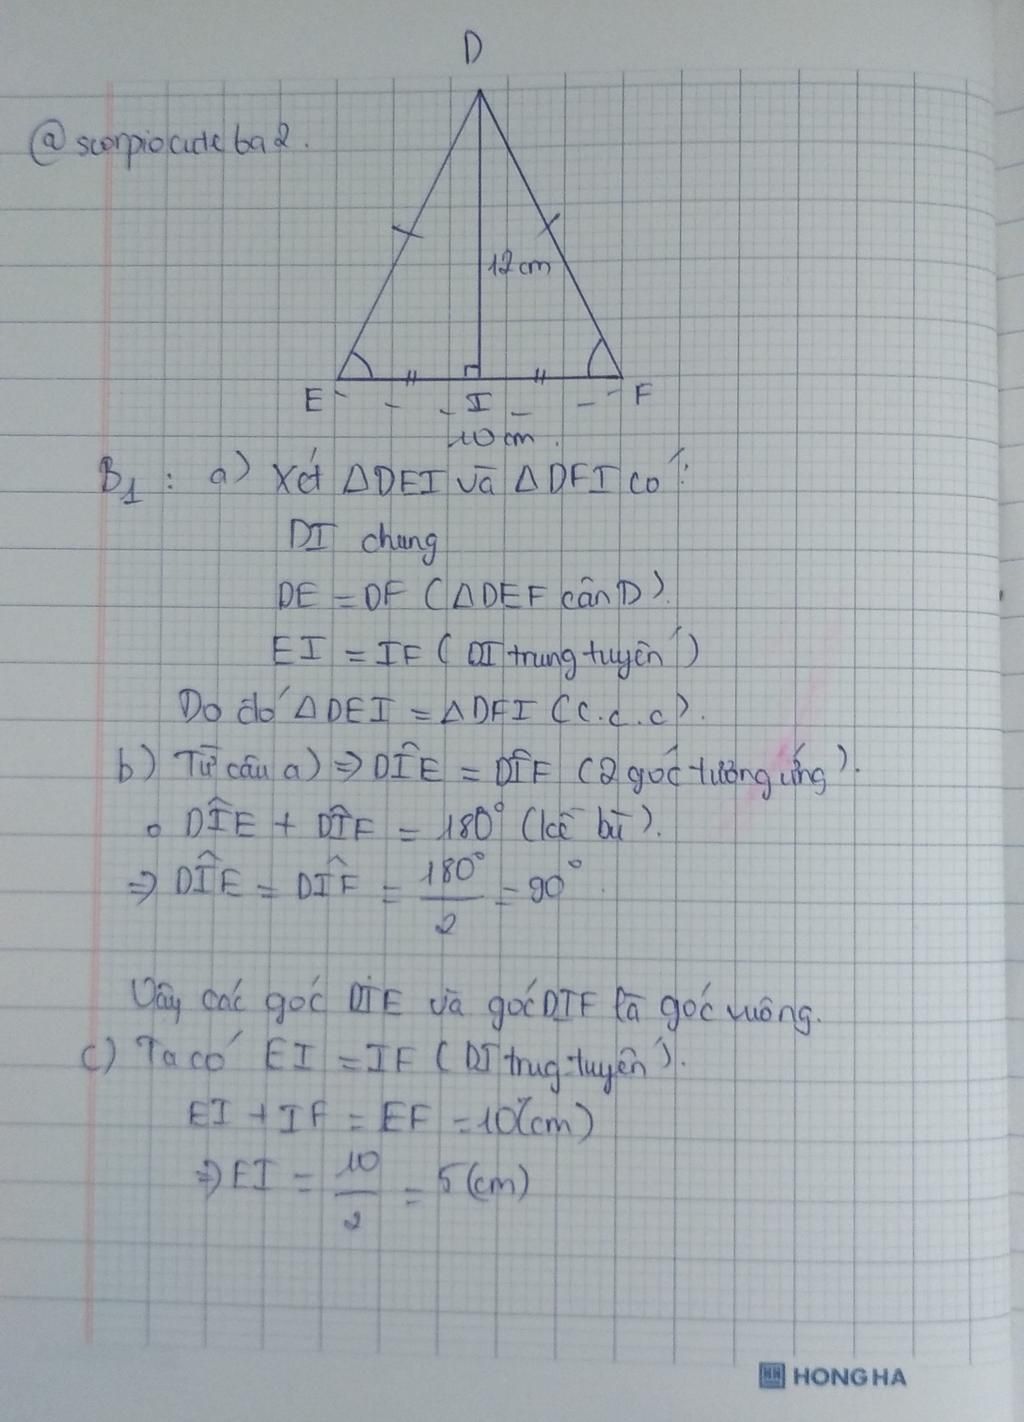 D
@scorpiocute ba2.
12cm
E
I
F
10cm.
B1: a) Xét ΔDEI và ΔDFI có:
DI chung
DE = DF (ΔDEF cân D).
EI = IF (DI trung tuyến)
Do đó ΔDEI = ΔDFI (c.c.c).
b) Từ câu a) ⇒ DÎE = DÎF (2 góc tương ứng).
DÎE + DÎF = 180° (kề bù).
⇒ DÎE = DÎF = 180°/2 = 90°.
Vậy các góc DIE và góc DIF là góc vuông.
c) Ta có EI = IF (DI trug tuyến).
EI + IF = EF = 10 (cm)
⇒ EI = 10/2 = 5 (cm)
HONG HA